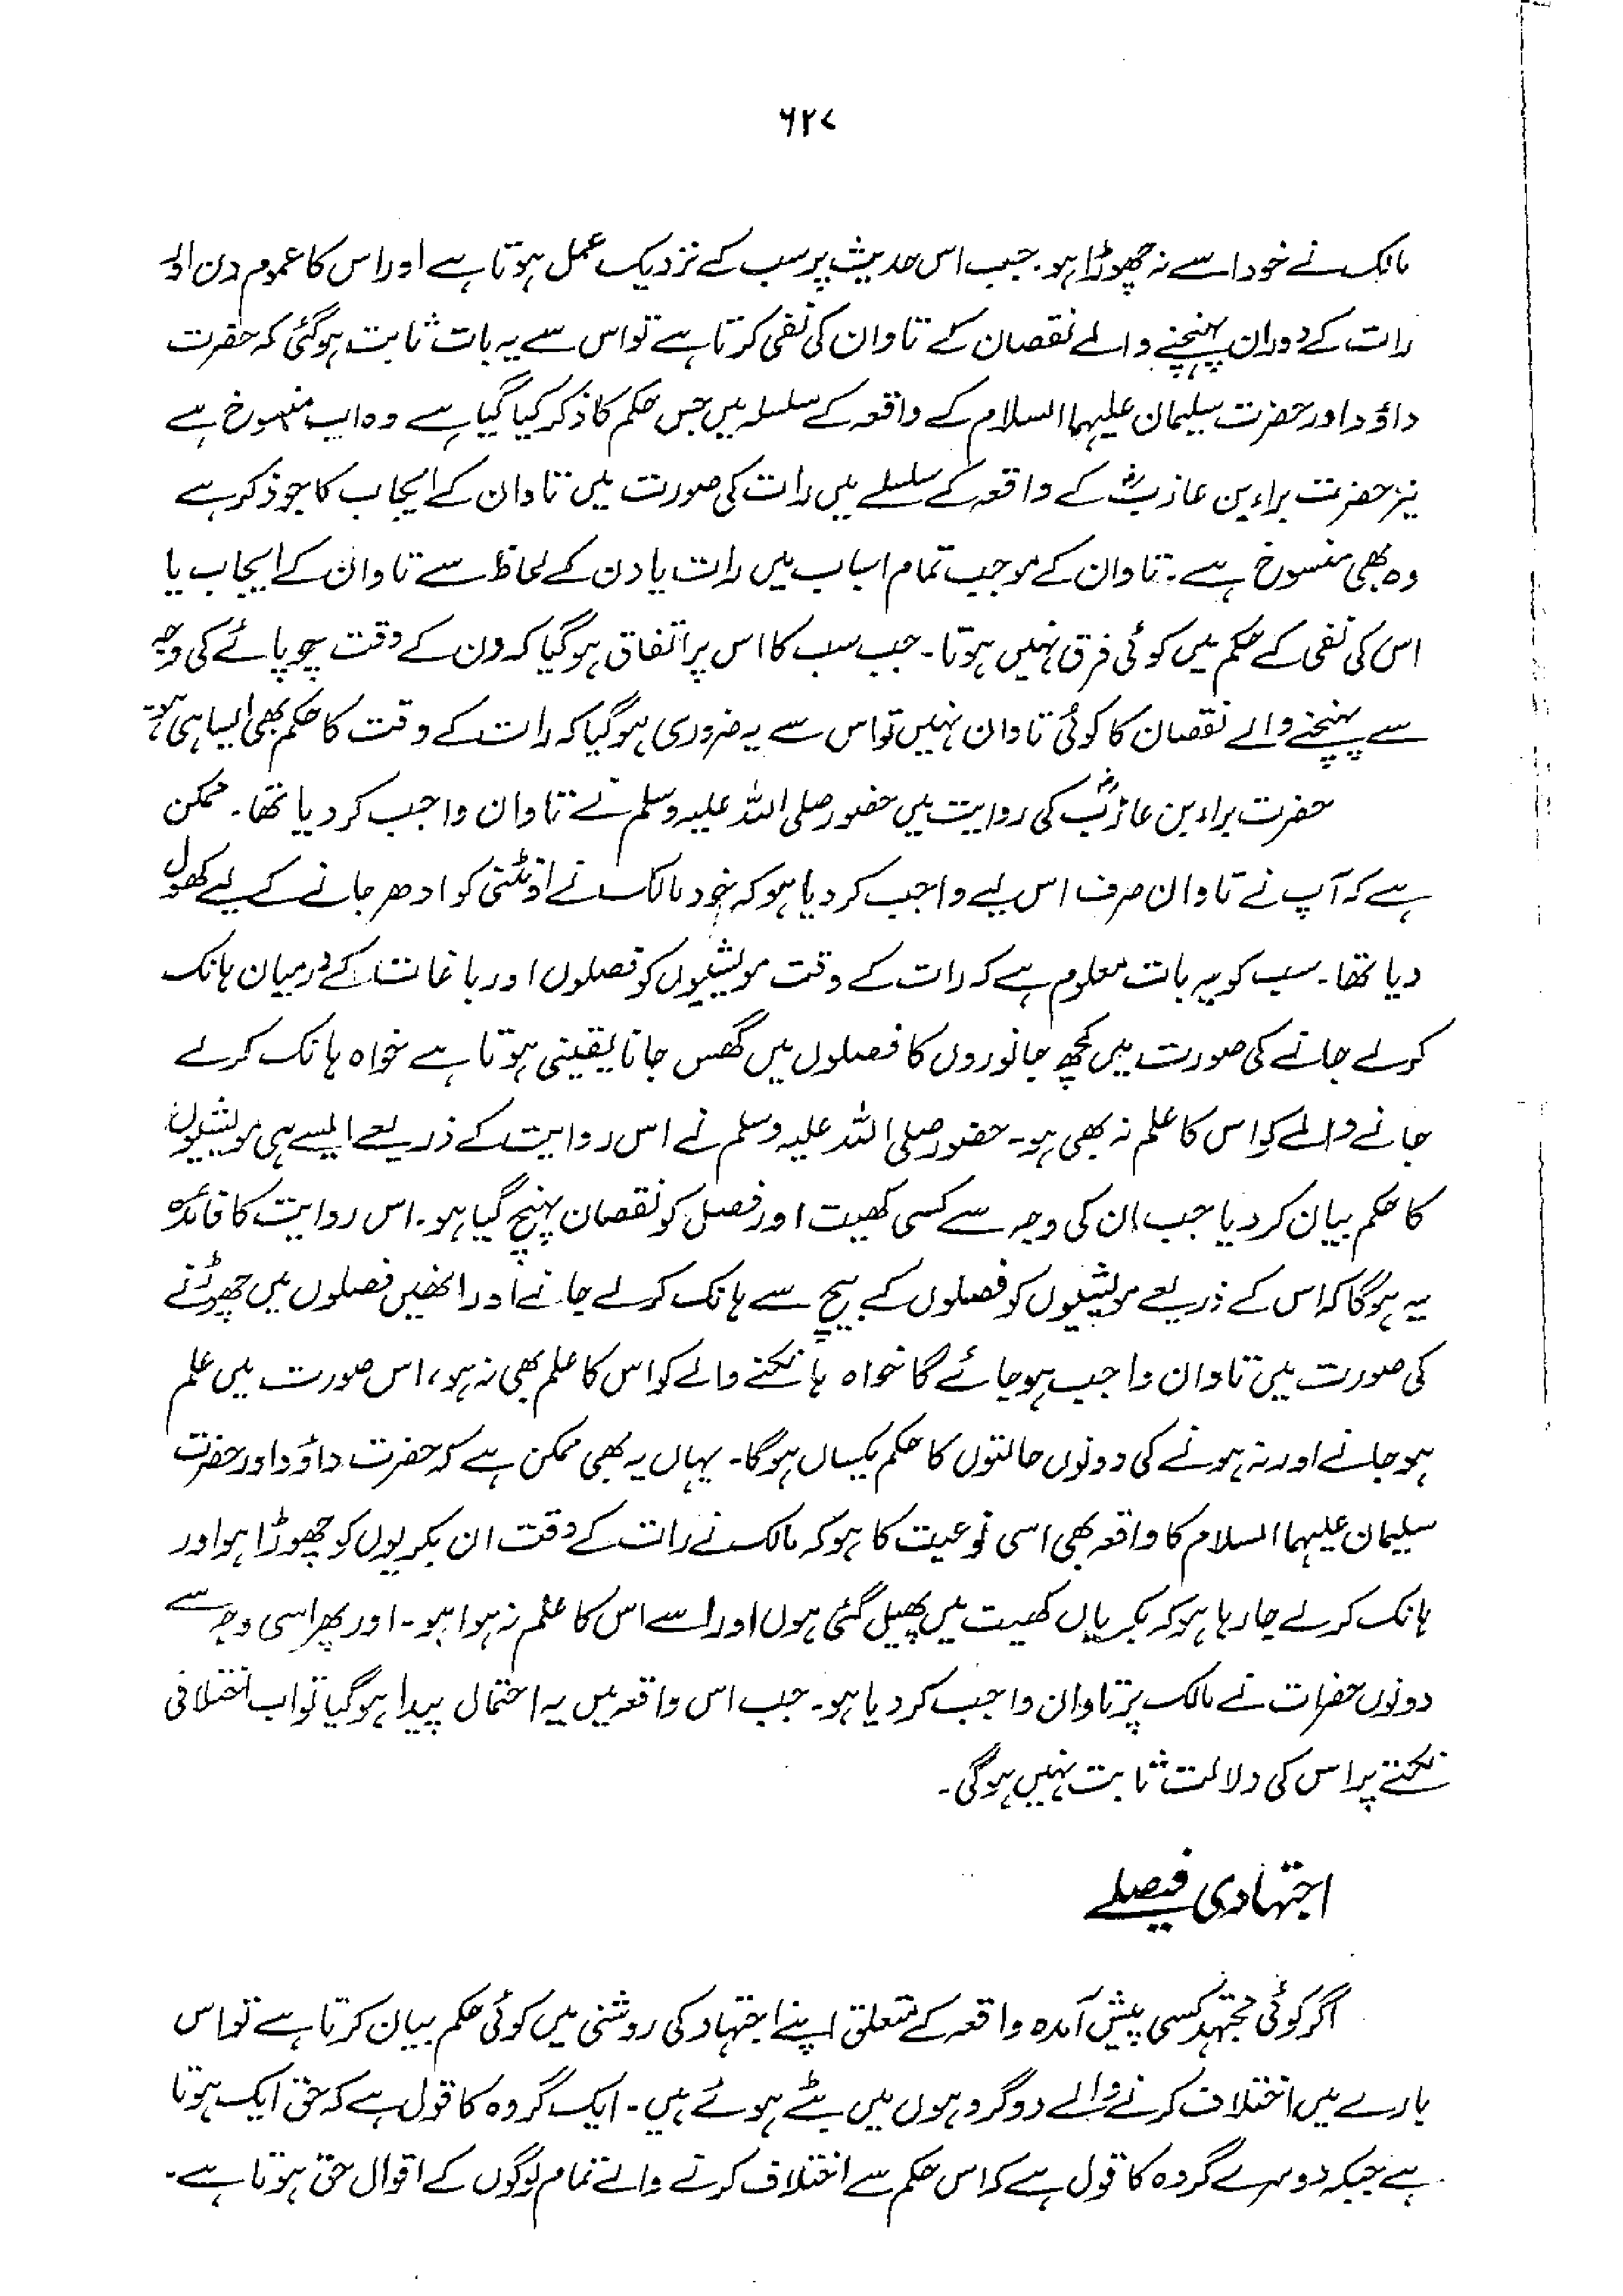 ۶۲۷
مالک نے خود اسے نہ چھوڑا ہو۔ جب اس حدیث پر سب کے نزدیک عمل ہوتا ہے اور اس کا عموم دن اور
رات کے دوران پہنچنے والے نقصان کے تاوان کی نفی کرتا ہے تو اس سے یہ بات ثابت ہوگئی کہ حضرت
داؤد اور حضرت سلیمان علیہما السلام کے واقعہ کے سلسلہ میں جس حکم کا ذکر کیا گیا ہے وہ اب منسوخ ہے
نیز حضرت براء بن عازبؓ کے واقعہ کے سلسلے میں رات کی صورت میں تاوان کے ایجاب کا جو ذکر ہے
وہ بھی منسوخ ہے۔ تاوان کے موجب تمام اسباب میں رات یا دن کے لحاظ سے تاوان کے ایجاب یا
اس کی نفی کے حکم میں کوئی فرق نہیں ہوتا۔ جب سب کا اس پر اتفاق ہوگیا کہ دن کے وقت چوپائے کی وجہ
سے پہنچنے والے نقصان کا کوئی تاوان نہیں تو اس سے یہ ضروری ہوگیا کہ رات کے وقت کا حکم بھی ایسا ہی ہو۔
حضرت براء بن عازبؓ کی روایت میں حضور صلی اللہ علیہ وسلم نے تاوان واجب کر دیا تھا۔ ممکن
ہے کہ آپ نے تاوان صرف اس لیے واجب کر دیا ہو کہ خود مالک نے اونٹنی کو ادھر جانے کے لیے کھول
دیا تھا۔ سب کو یہ بات معلوم ہے کہ رات کے وقت مویشیوں کو فصلوں اور باغات کے درمیان ہانک
کر لے جانے کی صورت میں کچھ جانوروں کا فصلوں میں گھس جانا یقینی ہوتا ہے خواہ ہانک کر لے
جانے والے کو اس کا علم نہ بھی ہو۔ حضور صلی اللہ علیہ وسلم نے اس روایت کے ذریعے ایسے ہی مویشیوں
کا حکم بیان کر دیا جب ان کی وجہ سے کسی کھیت اور فصل کو نقصان پہنچ گیا ہو۔ اس روایت کا فائدہ
یہ ہوگا کہ اس کے ذریعے مویشیوں کو فصلوں کے بیچ سے ہانک کر لے جانے اور انھیں فصلوں میں چھوڑنے
کی صورت میں تاوان واجب ہو جائے گا خواہ ہانکنے والے کو اس کا علم بھی نہ ہو، اس صورت میں علم
ہو جانے اور نہ ہونے کی دونوں حالتوں کا حکم یکساں ہوگا۔ یہاں یہ بھی ممکن ہے کہ حضرت داؤد اور حضرت
سلیمان علیہما السلام کا واقعہ بھی اسی نوعیت کا ہو کہ مالک نے رات کے وقت ان بکریوں کو چھوڑا ہو اور
ہانک کر لے جا رہا ہو کہ بکریاں کھیت میں پھیل گئی ہوں اور اسے اس کا علم نہ ہوا ہو۔ اور پھر اسی وجہ سے
دونوں حضرات نے مالک پر تاوان واجب کر دیا ہو۔ جب اس واقعہ میں یہ احتمال پیدا ہوگیا تو اب اختلافی
نکتے پر اس کی دلالت ثابت نہیں ہوگی۔
اجتہادی فیصلے
اگر کوئی مجتہد کسی پیش آمدہ واقعہ کے متعلق اپنے اجتہاد کی روشنی میں کوئی حکم بیان کرتا ہے تو اس
بارے میں اختلاف کرنے والے دو گروہوں میں بٹے ہوئے ہیں۔ ایک گروہ کا قول ہے کہ حق ایک ہوتا
ہے جبکہ دوسرے گروہ کا قول ہے کہ اس حکم سے اختلاف کرنے والے تمام لوگوں کے اقوال حق ہوتا ہے۔